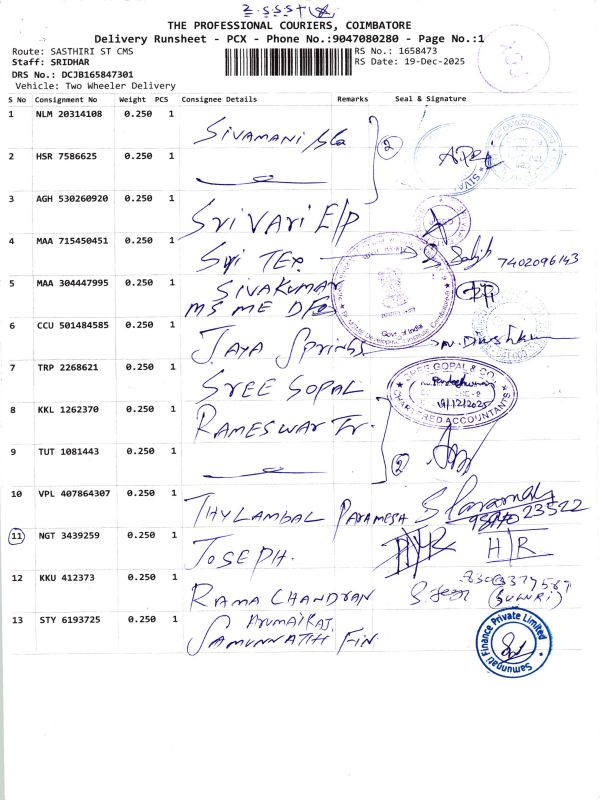 THE PROFESSIONAL COURIERS, COIMBATORE
Delivery Runsheet - PCX - Phone No.:9047080280 - Page No.:1
Route: SASTHIRI ST CMS RS No.: 1658473
Staff: SRIDHAR RS Date: 19-Dec-2025
DRS No.: DCJB165847301
Vehicle: Two Wheeler Delivery
S No Consignment No Weight PCS Consignee Details Remarks Seal & Signature
1 NLM 20314108 0.250 1 SIVAMANI
2 HSR 7586625 0.250 1 2
3 AGH 530260920 0.250 1 SRI VARI E/P
4 MAA 715450451 0.250 1 Sri TEX 7402096143
5 MAA 304447995 0.250 1 SIVAKUMAR
MSME DFO
Govt. of India
6 CCU 501484585 0.250 1 JAYA SPrings
7 TRP 2268621 0.250 1 SREE GOPAL
SREE GOPAL & CO.
19/12/2025
CHARTERED ACCOUNTANTS
8 KKL 1262370 0.250 1 RAMESWAR Tr.
9 TUT 1081443 0.250 1 2
10 VPL 407864307 0.250 1 THYLAMBAL PARAMESH
11 NGT 3439259 0.250 1 JOSEPH. H/R
12 KKU 412373 0.250 1 RAMA CHANDRAN
13 STY 6193725 0.250 1 ARUMAIRAJ
SAMUNNATHI FIN
Samunnati Finance Private Limited